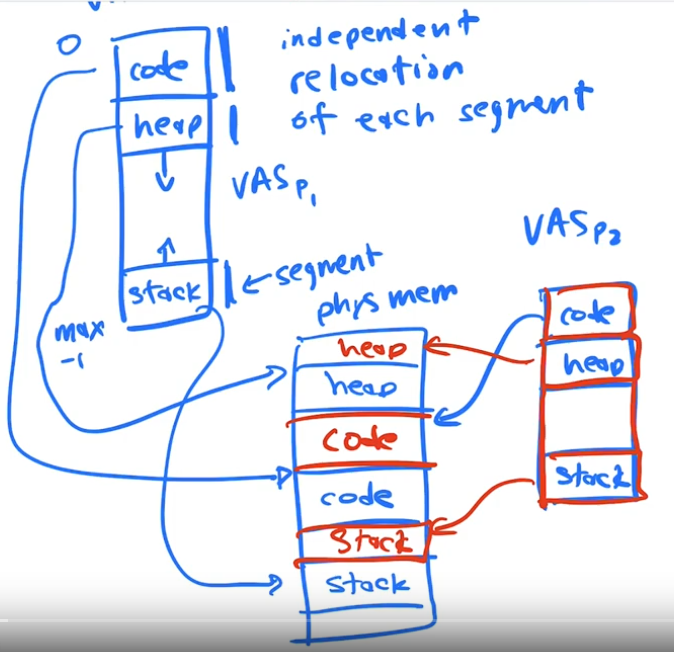 0
code
heap
stack
max
-1
independent
relocation
of each segment
VASP1
segment
phys mem
heap
heap
code
code
Stack
stack
VASP2
code
heap
stack